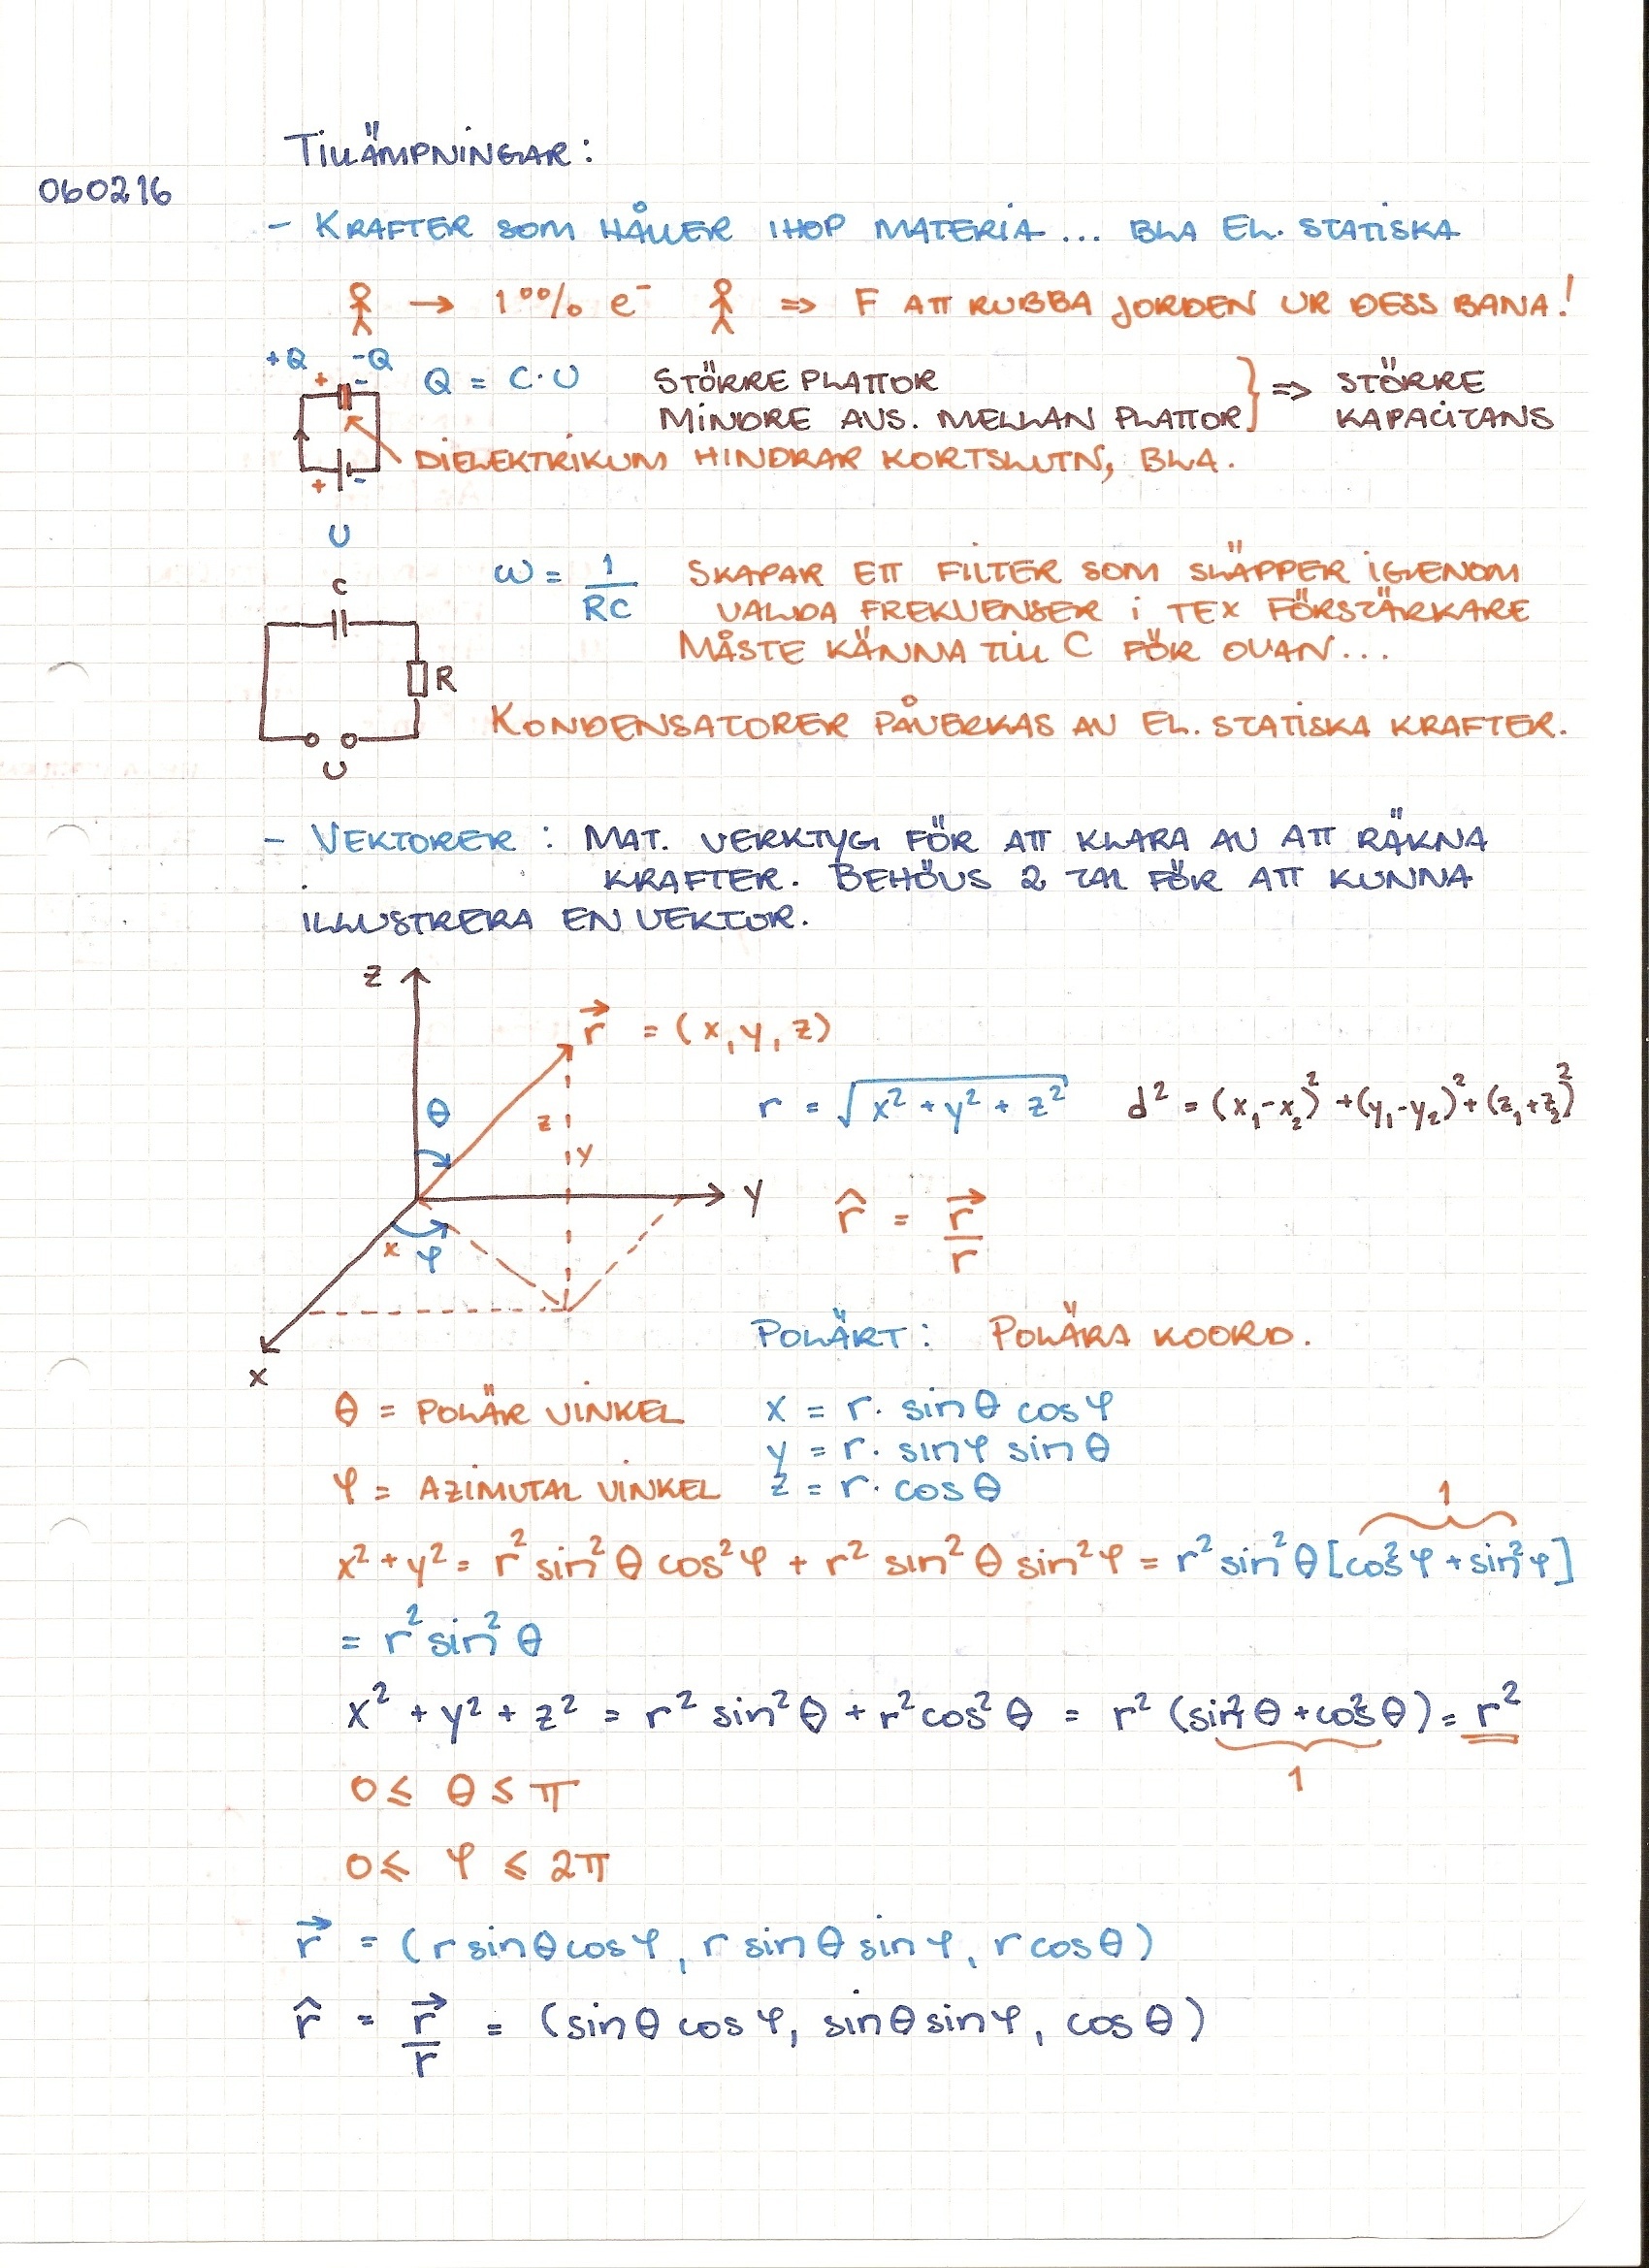 TILLÄMPNINGAR:
060216
- KRAFTER SOM HÅLLER IHOP MATERIA... BLA EL. STATISKA
→ 1°°% e⁻ ⇒ F ATT RUBBA JORDEN UR DESS BANA!
+Q -Q
+ -
Q = C·U STÖRRE PLATTOR
MINDRE AVS. MELLAN PLATTOR } ⇒ STÖRRE KAPACITANS
DIELEKTRIKUM HINDRAR KORTSLUTN, BLA.
+ -
U
C
ω = 1/RC SKAPAR ETT FILTER SOM SLÄPPER IGENOM
VALDA FREKVENSER i TEX FÖRSTÄRKARE
MÅSTE KÄNNA TILL C FÖR OVAN...
R
KONDENSATORER PÅVERKAS AV EL. STATISKA KRAFTER.
U
- VEKTORER : MAT. VERKTYG FÖR ATT KLARA AV ATT RÄKNA
KRAFTER. BEHÖVS 2 TAL FÖR ATT KUNNA
ILLUSTRERA EN VEKTOR.
z
r⃗ = (x, y, z)
θ z
r = √(x² + y² + z²) d² = (x₁-x₂)² + (y₁-y₂)² + (z₁+z₂)²
y
y
r̂ = r⃗/r
x φ
POLÄRT: POLÄRA KOORD.
x
θ = POLÄR VINKEL x = r· sinθ cosφ
y = r· sinφ sinθ
φ = AZIMUTAL VINKEL z = r· cosθ
1
x² + y² = r² sin²θ cos²φ + r² sin²θ sin²φ = r² sin²θ [cos²φ + sin²φ]
= r² sin²θ
x² + y² + z² = r² sin²θ + r² cos²θ = r² (sin²θ + cos²θ) = r²
1
0 ≤ θ ≤ π
0 ≤ φ ≤ 2π
r⃗ = (r sinθ cosφ, r sinθ sinφ, r cosθ)
r̂ = r⃗/r = (sinθ cosφ, sinθ sinφ, cosθ)